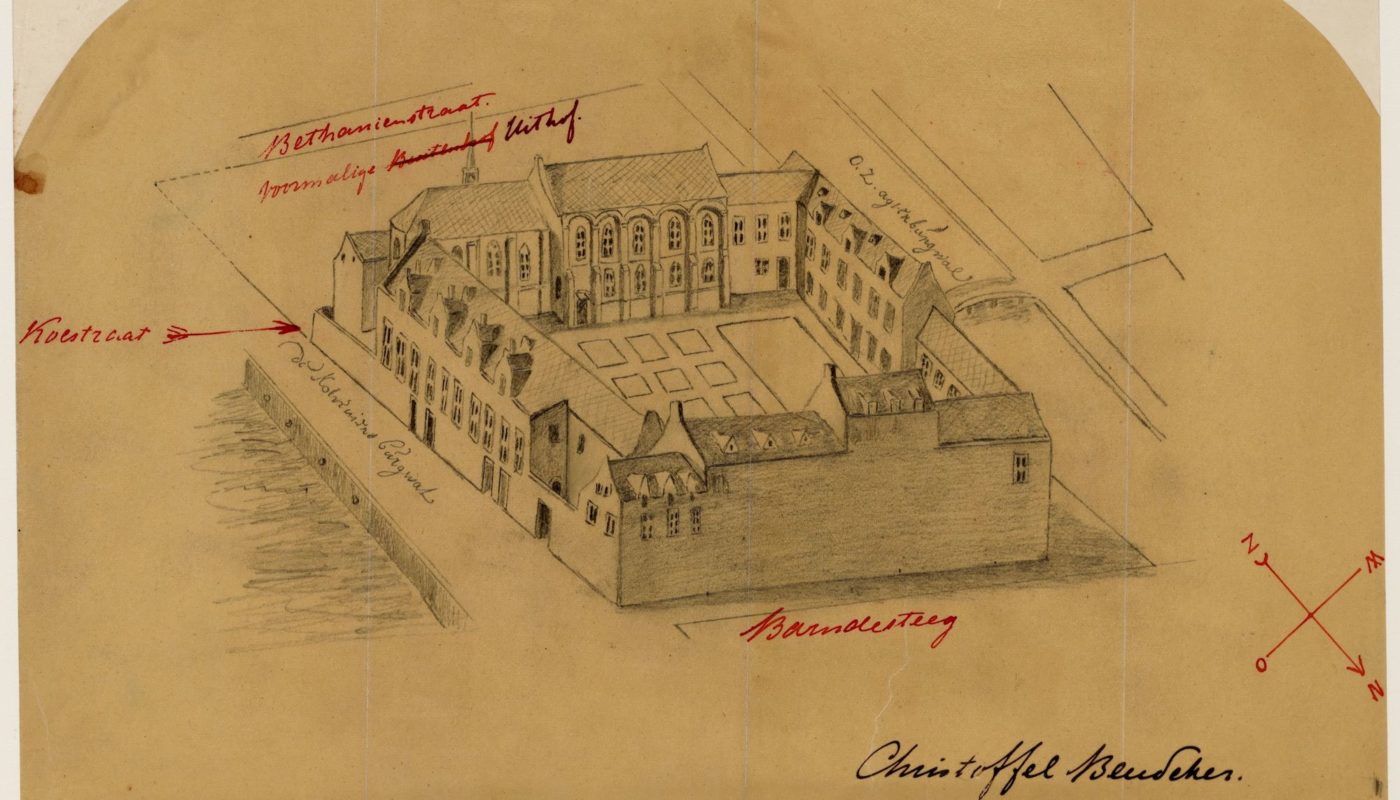 Bethanienstraat.
voormalige Buitenhof Uithof.
O.Z. agterburgwal
Koestraat
de Kolveniers Burgwal
N
W
O
Z
Barndesteeg
Christoffel Beudeker.